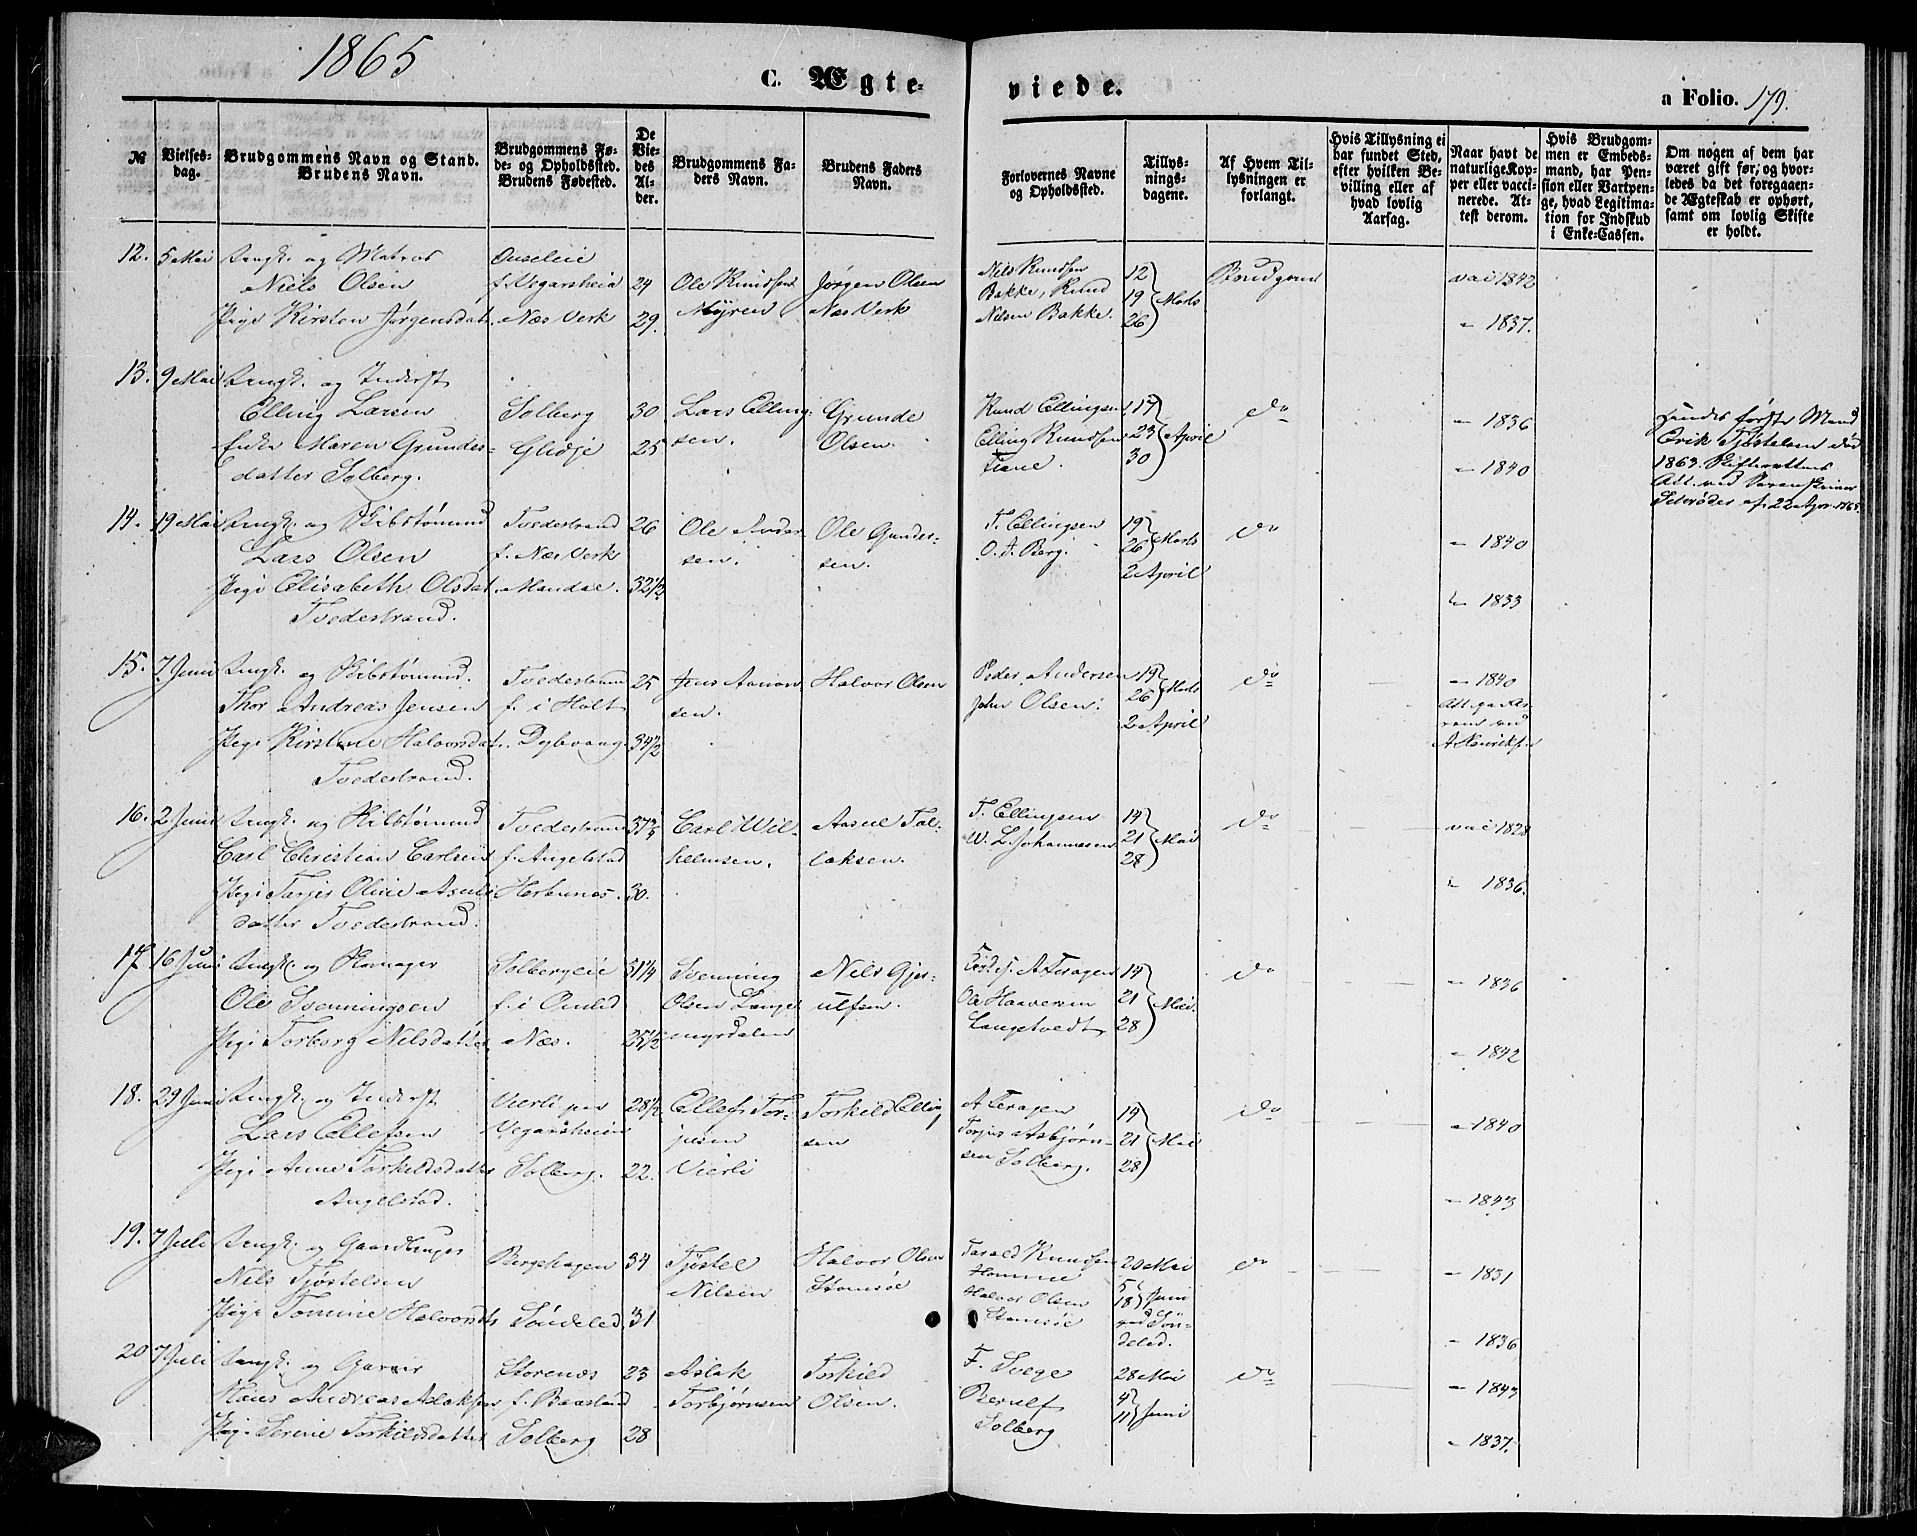 1865
C. Ægte-
viede.
a Folio. 179.
№
Vielses-
dag.
Brudgommens Navn og Stand.
Brudens Navn.
Brudgommens Fø-
de- og Opholdssted.
Brudens Fødested.
De
Vie-
des
Al-
der.
Brudgommens Fa-
ders Navn.
Brudens Faders
Navn.
Forlovernes Navne
og Opholdssted.
Tillys-
nings-
dagene.
Af Hvem Til-
lysningen er
forlangt.
Hvis Tillysning ei
har fundet Sted,
efter hvilken Be-
villing eller af
hvad lovlig
Aarsag.
Naar havt de
naturlige Kop-
per eller vacci-
nerede. At-
test derom.
Hvis Brudgom-
men er Embeds-
mand, har Pen-
sion eller Vartpen-
ge, hvad Legitima-
tion for Indskud
i Enke-Cassen.
Om nogen af dem har
været gift før; og hvor-
ledes da det foregaaen-
de Ægteskab er ophørt,
samt om lovlig Skifte
er holdt.
12. 5 Mai Ungk. og Matros
Niels Olsen
Pige Kirsten Jørgensdat.
f. Vegarsheia
Næs Verk
24
29.
Ole Knudsen
Myren
Jørgen Olsen
Næs Verk
Nils Knudsen
Bakke, Knud
Nilsen Bakke.
12
19 Marts
26
Brudgom
vac 1842
" 1837.
13. 9 Mai Ungk. og Inderst
Elling Larsen
Enke Maren Grundes-
datter Solberg.
Solberg
30
25
Lars Elling-
sen.
Grunde
Olsen.
Knud Ellingsen
Elling Knudsen
17
23 April
30
do
" 1836
" 1840
Hendes første Mand
Erik Tjøstelsen død
1863.
14. 19 Mai Ungk. og Skibstømmd
Lars Olsen
Pige Elisabeth Olsdat.
Tvedestrand.
Tvedestrand
f. Næs Verk
Mandal.
26
32½
Ole Ander-
sen.
Ole Gunder-
sen.
T. Ellingsen
O. A. Berg.
19
26 Marts
2 April
do
" 1840
" 1833
15. 7 Juni Ungk. og Skibstømmd.
Thor Andreas Jensen
Pige Kirstine Halvorsdat.
Tvedestrand.
Tvedestrand
f. i Holt
Dybvaag
25
34½
Jens Aanon-
sen.
Halvor Olsen
Peder Andersen
John Olsen.
19
26 Marts
2 April
do
" 1840
16. 2 Juni Ungk. og Skibstømmd
Carl Christian Carlsen
Pige Tarjer Olive Asuls-
datter Tvedestrand.
Tvedestrand
f. Angelstad
30.
Carl Wil-
helmsen.
Aasul Tal-
laksen.
T. Ellingsen
W. L. Johannesen
14
21 Mai
28
do
vac 1828
" 1836.
17. 16 Juni Ungk. og Skomager
Ole Svenningsen
Pige Torborg Nilsdatter
Solbergeie
f. i Omlid
Næs.
31¼
25½
Svenning
Olsen Lange-
myrdalen
Nils Gjer-
ulfsen.
Ole Haaversen
Langetvedt
14
21 Mai.
28
do
" 1836
" 1842
18. 29 Juni Ungk. og Inderst
Lars Ellefsen
Pige Anne Torkildsdatter
Angelstad.
Vierli paa
Vegarsheien
Solberg.
28½
22.
Ellef Tor-
jusen
Vierli
Torkild Elling-
sen
Torjus Asbjørn-
sen Solberg.
19
21 Mai
28
do
" 1840
" 1843
19. 7 Juli Ungk. og Gaardbruger
Nils Tjøstelsen
Pige Tomine Halvorsdt
Bergshagen
Søndeled
34
31
Tjøstel
Nilsen
Halvor Olsen
Tarald Knudsen
Homme
Halvor Olsen
20 Mai
5
18 Juni
ved Søn-
deled.
do
" 1831
" 1836
20 7 Juli Ungk. og Garver
Hans Andreas Aslaksen
Pige Serine Torkildsdatter
Storenæs
f. Baasland
Solberg
23
28
Aslak
Torbjørnsen
Torkild
Olsen.
F. Svege
Berulf
Solberg
28 Mai
4
11 Juni
do
" 1843
" 1837.